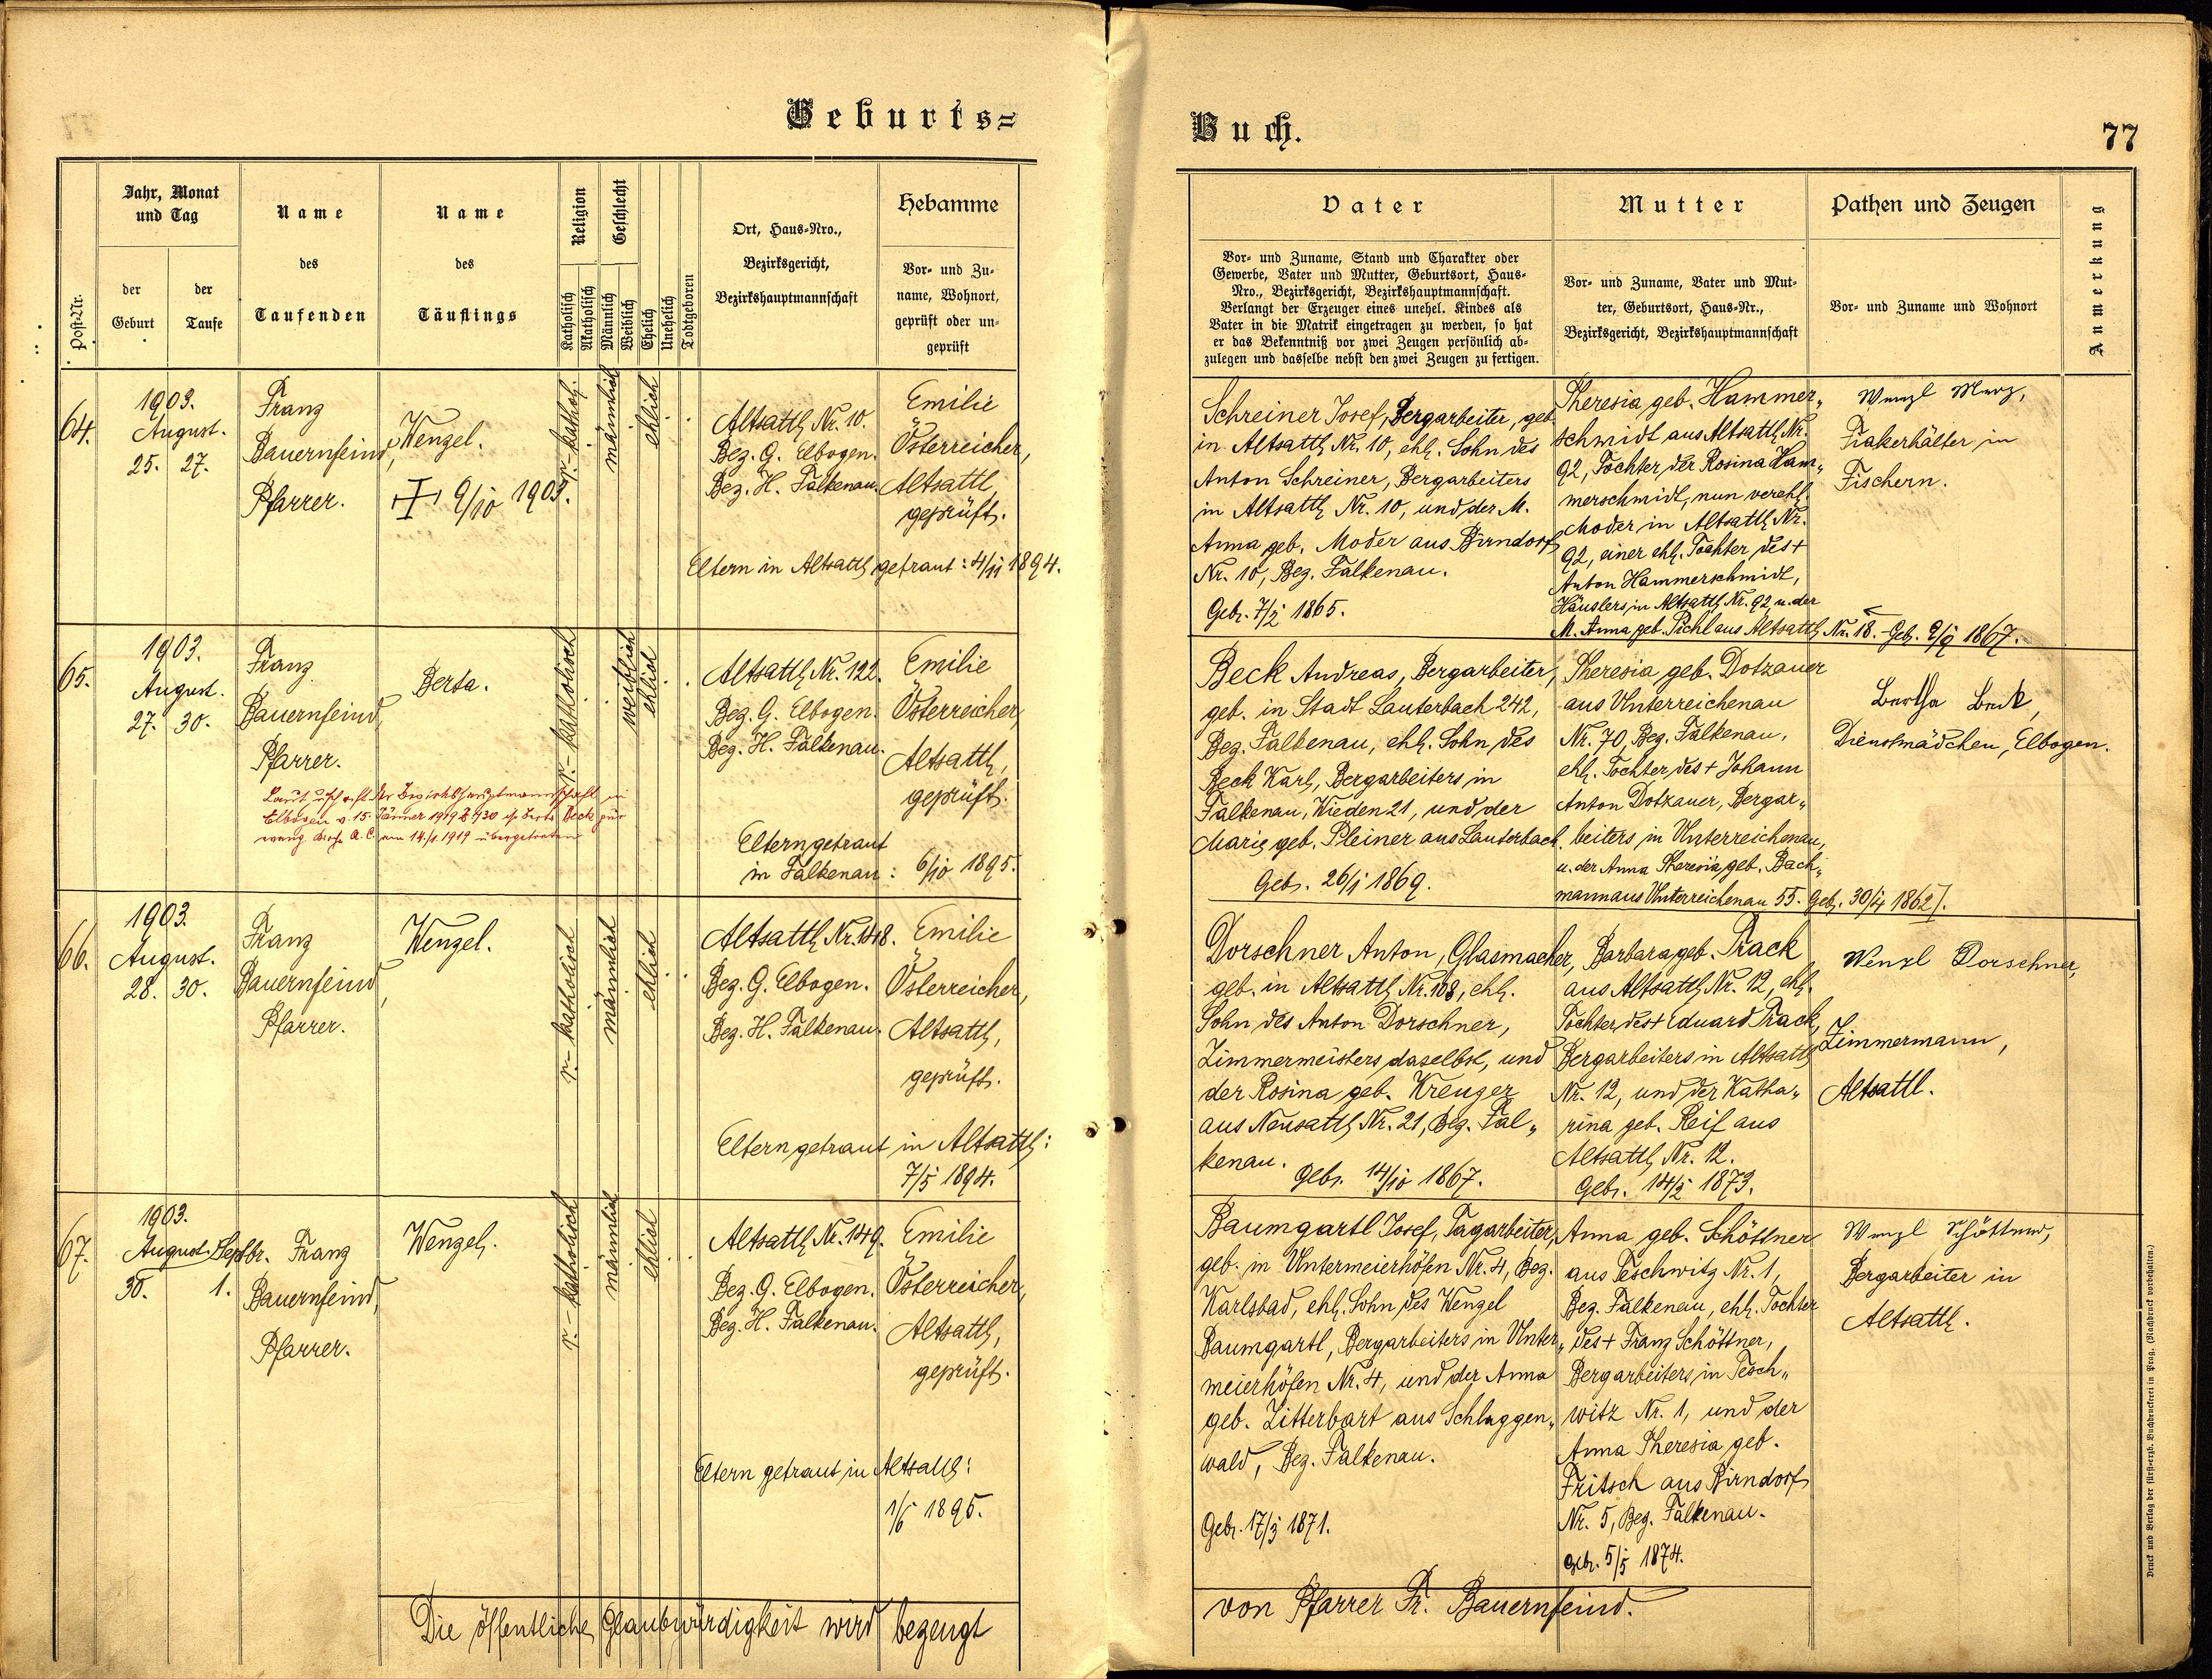 Geburts=
Buch.
77
Post-Nr.
Jahr, Monat
und Tag
der
Geburt
der
Taufe
Name
des
Taufenden
Name
des
Täuflings
Religion
Katholisch
Akatholisch
Geschlecht
Männlich
Weiblich
Ehelich
Unehelich
Todtgeboren
Ort, Haus-Nro.,
Bezirksgericht,
Bezirkshauptmannschaft
Hebamme
Vor- und Zu-
name, Wohnort,
geprüft oder un-
geprüft
Vater
Vor- und Zuname, Stand und Charakter oder
Gewerbe, Vater und Mutter, Geburtsort, Haus-
Nro., Bezirksgericht, Bezirkshauptmannschaft.
Verlangt der Erzeuger eines unehel. Kindes als
Vater in die Matrik eingetragen zu werden, so hat
er das Bekenntniß vor zwei Zeugen persönlich ab-
zulegen und dasselbe nebst den zwei Zeugen zu fertigen.
Mutter
Vor- und Zuname, Vater und Mut-
ter, Geburtsort, Haus-Nr.,
Bezirksgericht, Bezirkshauptmannschaft
Pathen und Zeugen
Vor- und Zuname und Wohnort
Anmerkung
64.
1903.
August.
25. 27.
Franz
Bauernfeind,
Pfarrer.
Wenzel.
9/10
r.-kathol.
männlich
ehlich
Altsattl Nr. 10.
Bez. G. Elbogen.
Bez. H. Falkenau.
Emilie
Österreicher,
Altsattl
geprüft.
Eltern in Altsattl getraut: 4/11 1894.
Schreiner Josef, Bergarbeiter, geb.
in Altsattl Nr. 10, ehl. Sohn des
Anton Schreiner, Bergarbeiters
in Altsattl Nr. 10, und der M.
Anna geb. Moder aus Birndorf
Nr. 10, Bez. Falkenau.
Geb. 1865.
Theresia geb. Hammer„
schmidt aus Altsattl Nr.
92, Tochter der Rosina Ham„
merschmidt, nun verehl.
Moder in Altsattl Nr.
92, einer ehl. Tochter des +
Anton Hammerschmidt,
Häuslers in Altsattl Nr. 92 u. der
M. Anna geb. Pichl aus Altsattl Nr. 18. - Geb. 1867.
Wenzl Merz,
Fiakerhälter in
Fischern.
65.
1903.
August.
27. 30.
Franz
Bauernfeind,
Pfarrer.
Berta.
r.-katholisch
weiblich
ehlich
Altsattl Nr. 122.
Bez. G. Elbogen.
Bez. H. Falkenau.
Emilie
Österreicher,
Altsattl,
geprüft.
Laut der Bezirkshauptmannschaft in
Elbogen v. 15. Jänner 1919 Berta Beck zur
A. C. am 14./1. 1919 übergetreten
Eltern getraut
in Falkenau: 6/10 1895.
Beck Andreas, Bergarbeiter,
geb. in Stadt Lauterbach 242,
Bez. Falkenau, ehl. Sohn des
Beck Karl, Bergarbeiters in
Falkenau, Wieden 21, und der
Marie geb. Pleiner aus Lauterbach.
Geb. 26/1 1869.
Theresia geb. Dotzauer
aus Unterreichenau
Nr. 70, Bez. Falkenau,
ehl. Tochter des + Johann
Anton Dotzauer, Bergar„
beiters in Unterreichenau,
u. der Anna Theresia geb. Bach„
mann aus Unterreichenau 55. Geb. 30/4
Bertha Beck,
Dienstmädchen, Elbogen.
66.
1903.
August.
28. 30.
Franz
Bauernfeind,
Pfarrer.
Wenzel.
r.-katholisch
männlich
ehlich
Altsattl Nr. 148.
Bez. G. Elbogen.
Bez. H. Falkenau.
Emilie
Österreicher,
Altsattl,
geprüft.
Eltern getraut in Altsattl:
7/5 1894.
Dorschner Anton, Glasmacher,
geb. in Altsattl Nr. 108, ehl.
Sohn des Anton Dorschner,
Zimmermeisters daselbst, und
der Rosina geb. Kreuzer
aus Neusattl Nr. 21, Bez. Fal„
kenau. Geb. 14/10 1867.
Barbara geb. Track
aus Altsattl Nr. 12, ehl.
Tochter des + Eduard Track,
Bergarbeiters in Altsattl
Nr. 12, und der Katha„
rina geb. Reif aus
Altsattl Nr. 12.
Geb. 1873.
Wenzl Dorschner,
Zimmermann,
Altsattl.
67.
1903.
August. Septbr.
30. 1.
Franz
Bauernfeind,
Pfarrer.
Wenzel.
r.-katholisch
männlich
ehlich
Altsattl Nr. 149.
Bez. G. Elbogen.
Bez. H. Falkenau.
Emilie
Österreicher,
Altsattl,
geprüft.
Eltern getraut in Altsattl:
1/6 1895.
Baumgartl Josef, Tagarbeiter,
geb. in Untermeierhöfen Nr. 4, Bez.
Karlsbad, ehl. Sohn des Wenzel
Baumgartl, Bergarbeiters in Unter„
meierhöfen Nr. 4, und der Anna
geb. Zitterbart aus Schlaggen„
wald, Bez. Falkenau.
Geb. 17/3 1871.
Anna geb. Schöttner
aus Teschwitz Nr. 1,
Bez. Falkenau, ehl. Tochter
des + Franz Schöttner,
Bergarbeiters in Tesch„
witz Nr. 1, und der
Anna Theresia geb.
Fritsch aus Birndorf
Nr. 5, Bez. Falkenau.
Geb. 5/5 1874.
Wenzl Schöttner,
Bergarbeiter in
Altsattl.
Die öffentliche Glaubwürdigkeit wird bezeugt
von Pfarrer Fr. Bauernfeind.
Druck und Verlag der fürst-erzb. Buchdruckerei in Prag. (Nachdruck vorbehalten.)